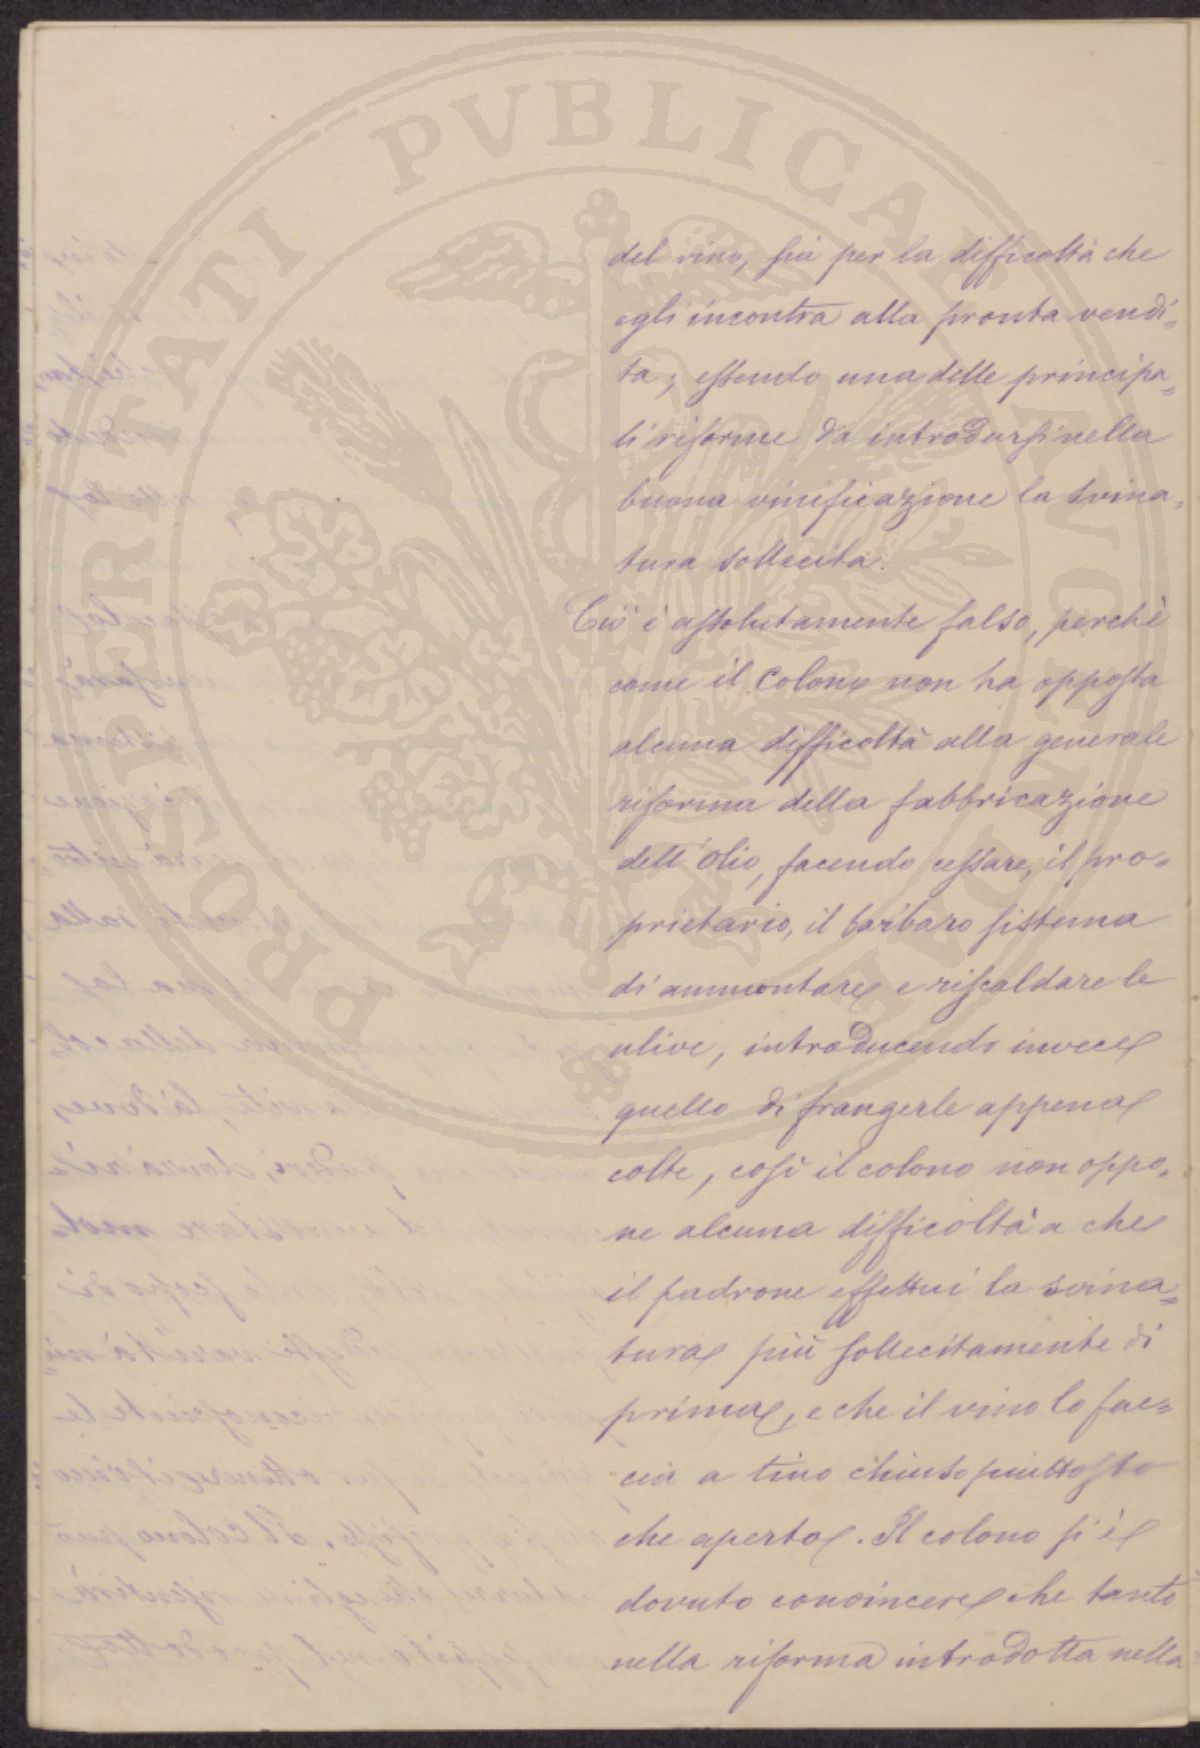 del vino, sia per la difficoltà che
egli incontra alla pronta vendi=
ta; essendo una delle principa=
li riforme da introdursi nella
buona vinificazione la svina=
tura sollecita.
Ciò è assolutamente falso, perchè
come il Colono non ha opposta
alcuna difficoltà alla generale
riforma della fabbricazione
dell'Olio, facendo cessare, il pro=
prietario, il barbaro sistema
di ammontare e riscaldare le
ulive, introducendo invece
quello di frangerle appena
colte, così il colono non oppo=
ne alcuna difficoltà a che
il padrone effettui la svina=
tura più sollecitamente di
prima, e che il vino lo fac=
cia a tino chiuso piuttosto
che aperto. Il colono si è
dovuto convincere che tanto
nella riforma introdotta nella
PROSPERITATI PVBLICAE AVGENDAE